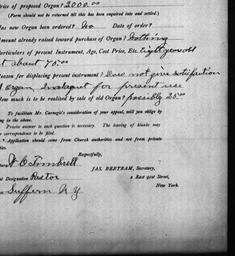 Price of proposed Organ? 2000.00
(Form should not be returned till this has been inquired into and settled.)
Has new Organ been ordered? No Date of order?
Amount already raised toward purchase of Organ? Nothing
Particulars of present Instrument, Age, Cost Price, Etc. Eight years old
Cost about 75.00
Reason for displacing present Instrument? Does not give satisfaction
Organ inadequate for present use
How much is to be realized by sale of old Organ? possibly 25.00
To facilitate Mr. Carnegie's consideration of your appeal, will you oblige by
in the above.
Precise answer to each question is necessary. The leaving of blanks may
correspondence to be filed.
Application should come from Church authorities and not from private
parties.
Respectfully,
JAS. BERTRAM, Secretary,
2 East 91st Street,
New York.
Designation Rector
Suffern N Y